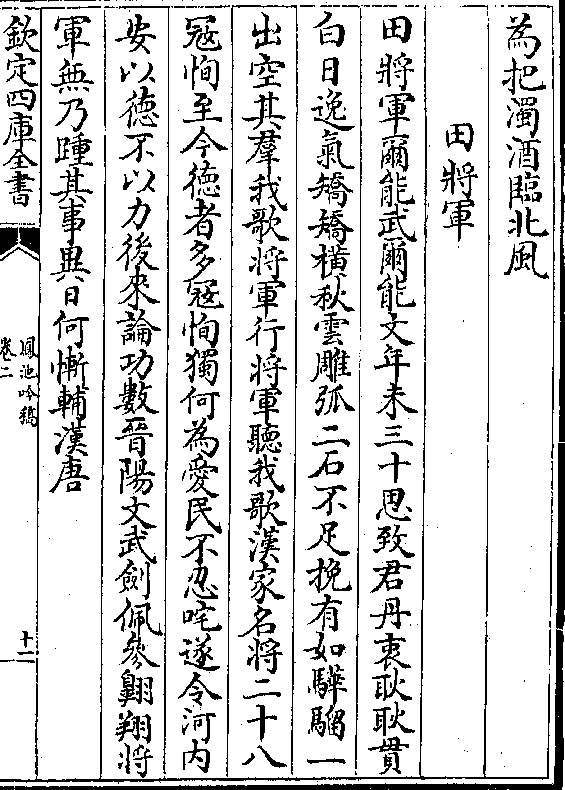 為把濁酒臨北風
田將軍
田將軍爾能武爾能文年未三十思致君丹衷耿耿貫
白日逸氣矯矯横秋雲雕弧二石不足挽有如驊騮一
出空其羣我歌將軍行將軍聽我歌漢家名將二十八
冦恂至今徳者多冦恂獨何為愛民不忍咤遂令河内
安以徳不以力後來論功數晉陽文武劍佩參翺翔將
軍無乃踵其事異日何慚輔漢唐
欽定四庫全書
鳳池吟稿
卷二
十一